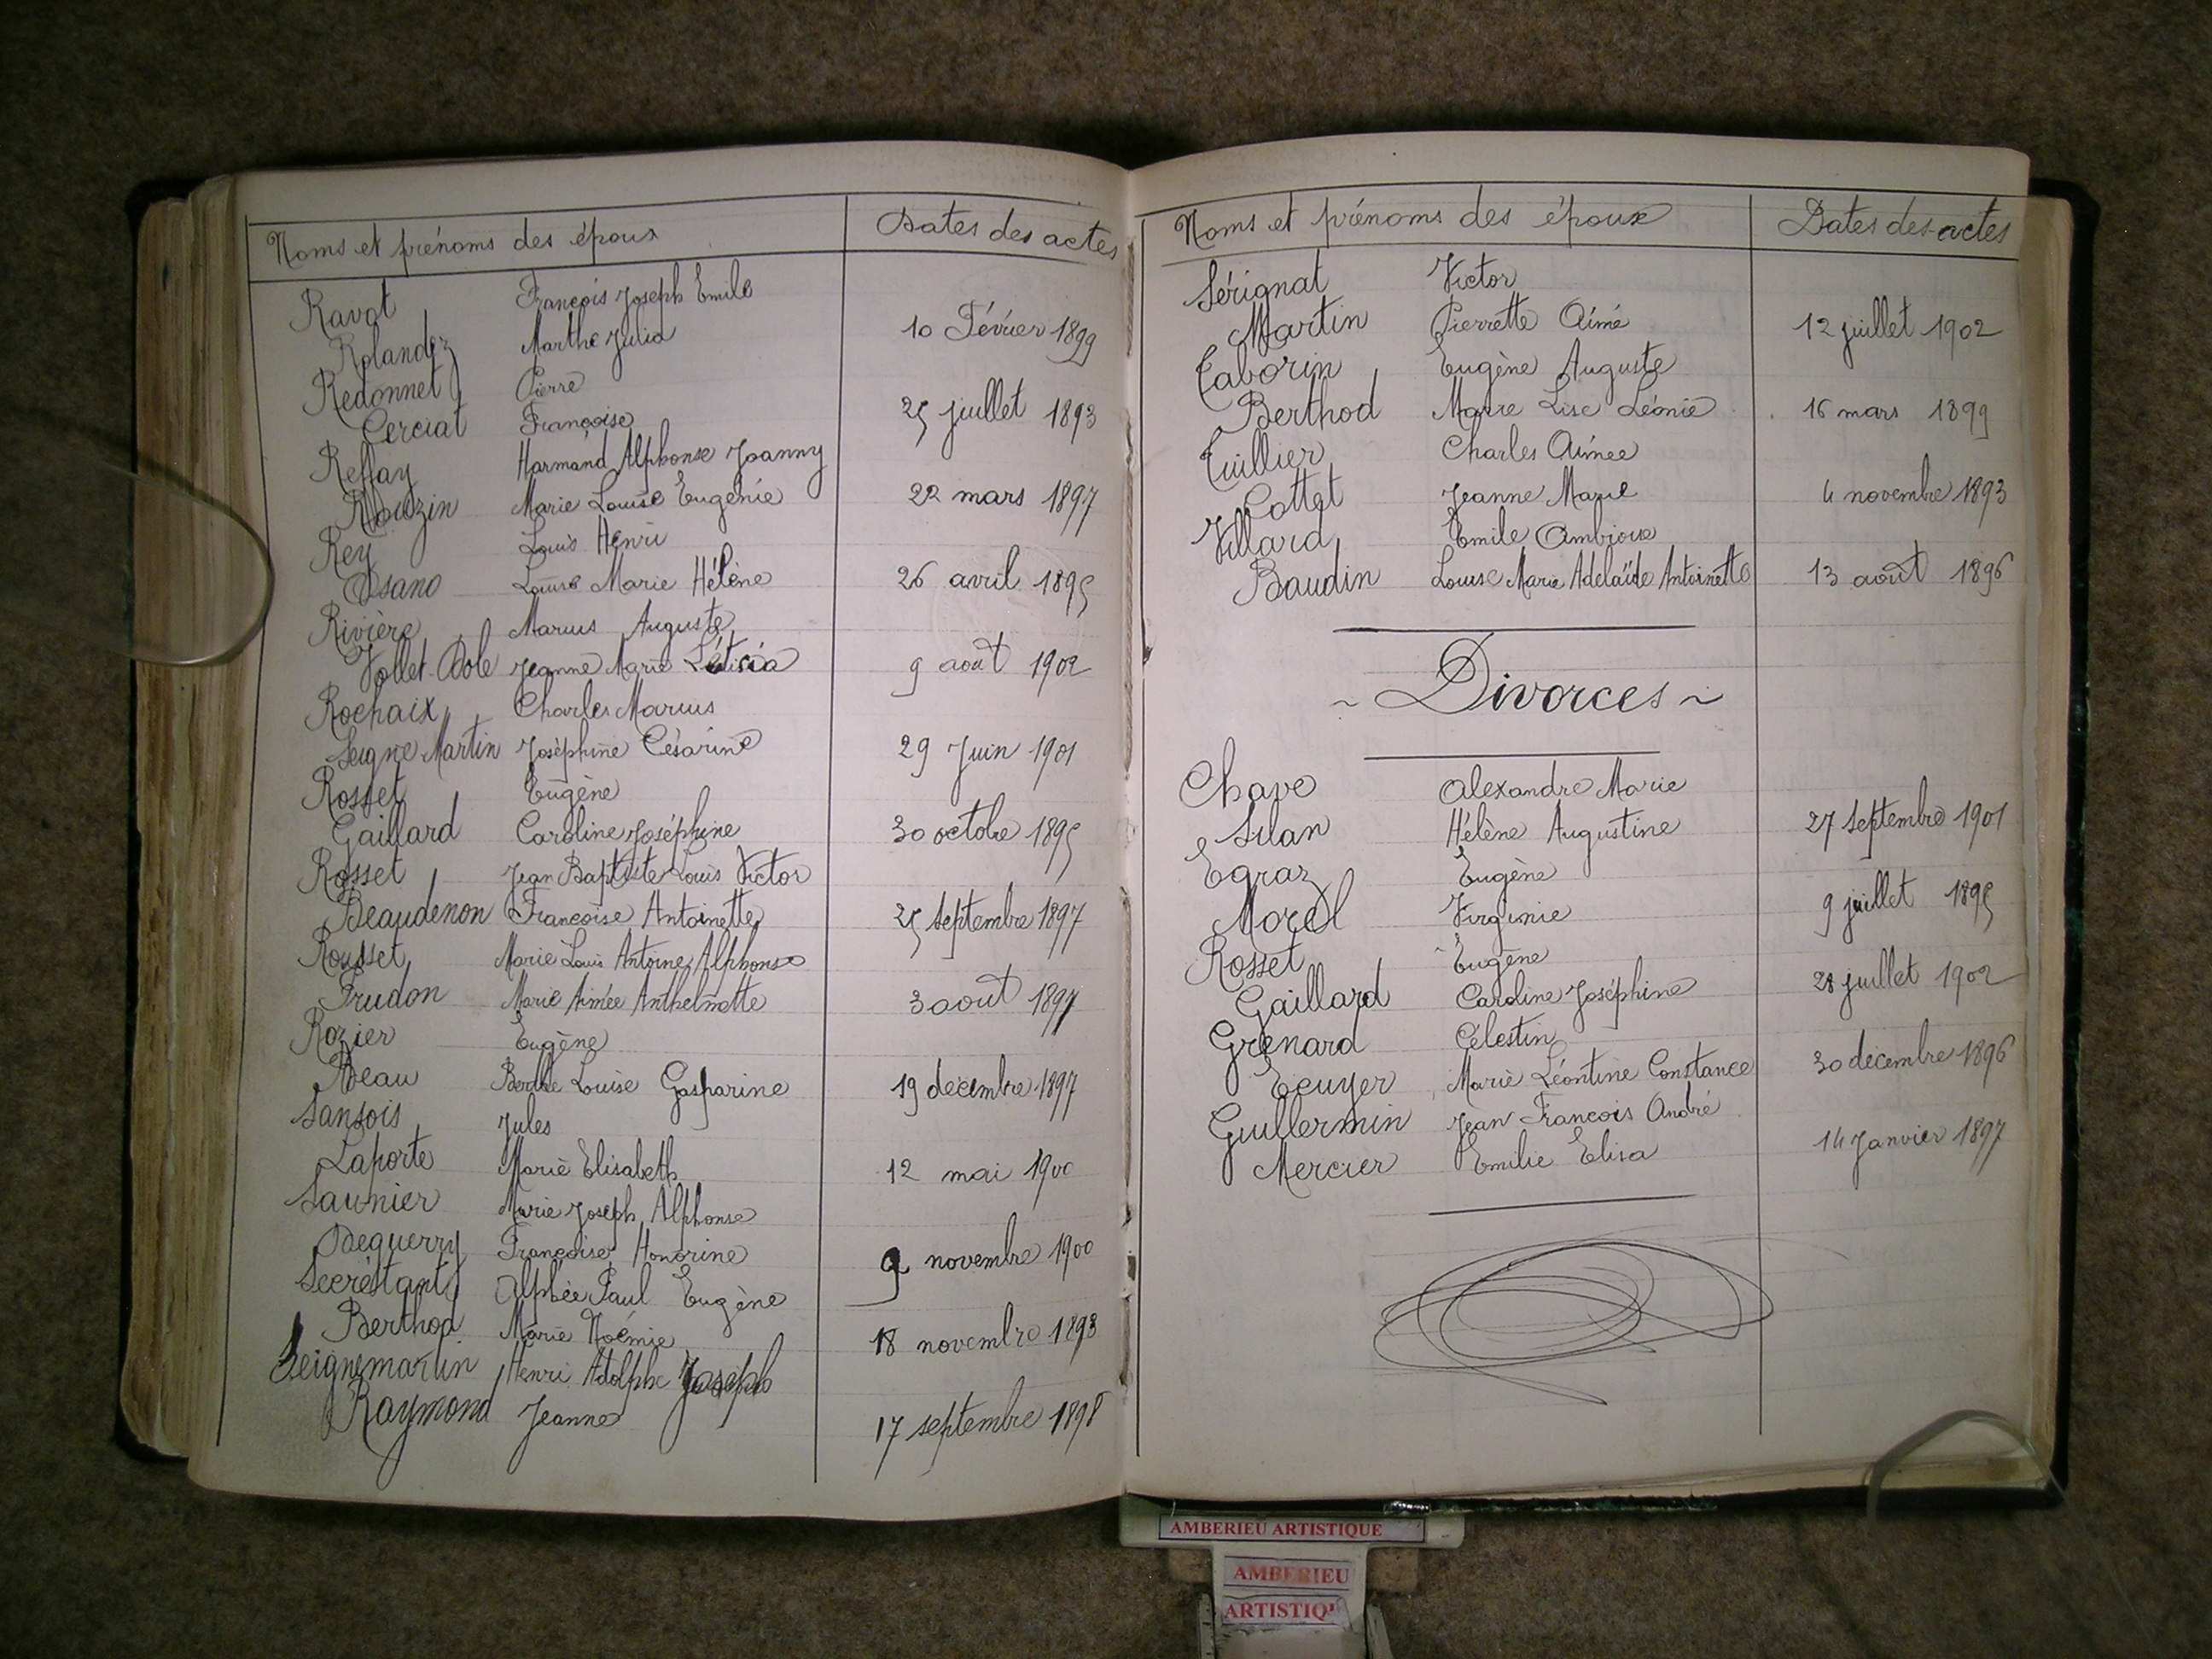 Noms et prénoms des époux Dates des actes
Ravat François Joseph Emile
Rolandez Marthe Julia 10 Février 1899
Redonnet Pierre
Cerciat Françoise 25 juillet 1893
Reffay Harmand Alphonse Joanny
Rouzin Marie Louise Eugénie 22 mars 1897
Rey Louis Henri
Osano Louise Marie Hélène 26 avril 1895
Rivière Marius Auguste
Vollet Dole Jeanne Marie Léticia 9 août 1902
Rochaix Charles Marius
Seigne Martin Joséphine Césarine 29 Juin 1901
Rosset Eugène
Gaillard Caroline Joséphine 30 octobre 1895
Rosset Jean Baptiste Louis Victor
Beaudenon Françoise Antoinette 25 septembre 1897
Rousset Marie Louis Antoine Alphonse
Prudon Marie Aimée Anthelmette 3 août 1897
Rozier Eugène
Beau Berthe Louise Gasparine 19 décembre 1897
Sansois Jules
Laporte Marie Elisabeth 12 mai 1900
Saunier Marie Joseph Alphonse
Deguerry Françoise Honorine 9 novembre 1900
Secrétant Alphée Paul Eugène
Berthod Marie Noémie 18 novembre 1893
Seignemartin Henri Adolphe Joseph
Raymond Jeanne 17 septembre 1898
Noms et prénoms des époux Dates des actes
Sérignat Victor
Martin Pierrette Aimé 12 juillet 1902
Taborin Eugène Auguste
Berthod Marie Lise Léonie 16 mars 1899
Tuillier Charles Aimée
Cottet Jeanne Marie 4 novembre 1893
Villard Emile Ambroise
Baudin Louise Marie Adelaïde Antoinette 13 août 1896
~ Divorces ~
Chave Alexandre Marie
Silan Hélène Augustine 27 Septembre 1901
Egraz Eugène
Morel Virginie 9 juillet 1895
Rosset Eugène
Gaillard Caroline Joséphine 28 juillet 1902
Grenard Célestin
Ecuyer Marie Léontine Constance 30 décembre 1896
Guillermin Jean François André
Mercier Emilie Elisa 14 Janvier 1897
AMBERIEU ARTISTIQUE
AMBERIEU
ARTISTIQU